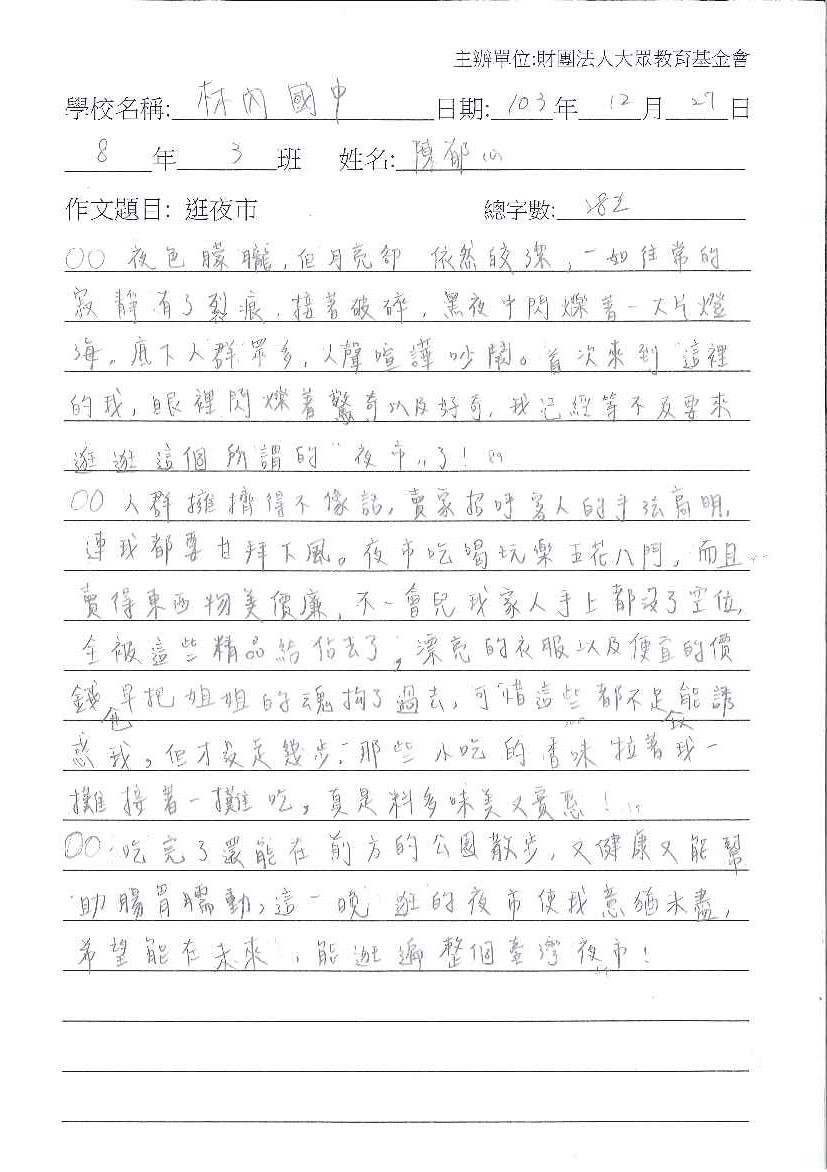 主辦單位:財團法人大眾教育基金會
學校名稱: 林內國中 日期: 103 年 12 月 27 日
8 年 3 班 姓名: 陳郁心
作文題目: 逛夜市 總字數:
○○夜色朦朧，但月亮卻依然皎潔，一如往常的
寂靜有了裂痕，接著破碎，黑夜中閃爍著一大片燈
海。底下人群眾多，人聲喧譁吵鬧。首次來到這裡
的我，眼裡閃爍著驚奇以及好奇，我已經等不及要來
逛逛這個所謂的"夜市"了！
○○人群擁擠得不像話，賣家招呼客人的手法高明，
連我都要甘拜下風。夜市吃喝玩樂五花八門，而且
賣得東西物美價廉，不一會兒我家人手上都沒了空位，
全被這些精品給佔去了，漂亮的衣服以及便宜的價
錢早把姐姐的魂拘了過去，可惜這些都不足能誘
惑我，但才沒走幾步，那些小吃的香味拉著我一
攤接著一攤吃，真是料多味美又實惠！
○○吃完了還能在前方的公園散步，又健康又能幫
助腸胃蠕動，這一晚逛的夜市使我意猶未盡，
希望能在未來，能逛遍整個臺灣夜市！